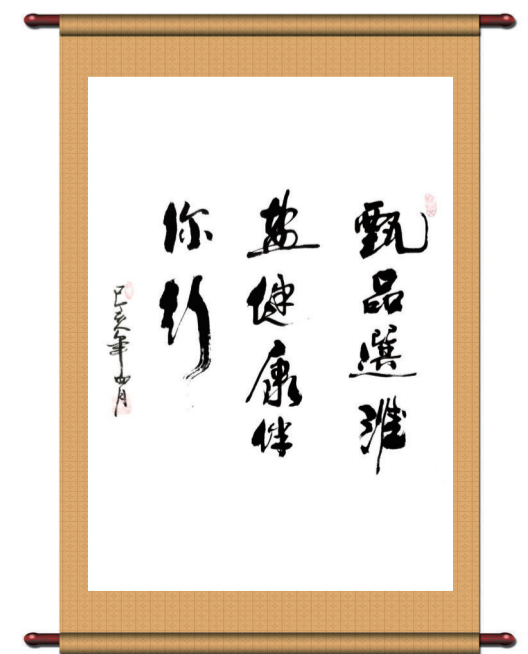 甄品選淮
盐健康伴
你行
己亥年四月